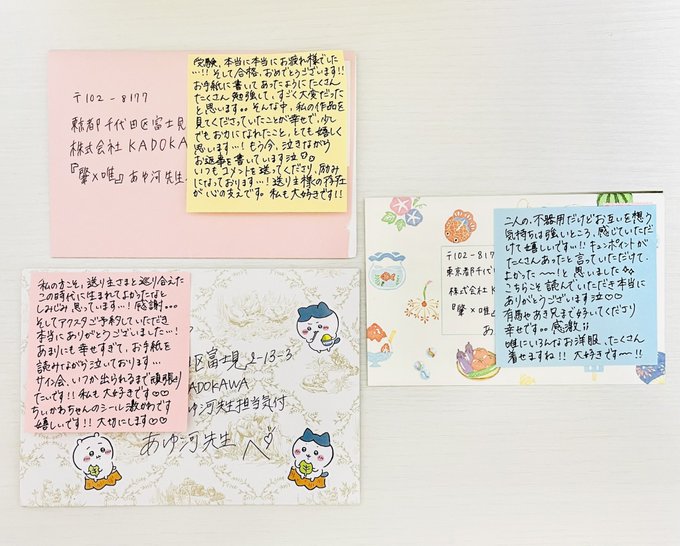 〒102-8177
東京都千代田区富士見
株式会社KADOKAWA
『肇×唯』あゆ河先生
受験、本当に本当にお疲れ様でした
…!! そして合格、おめでとうございます!!
お手紙に書いてあったようにたくさん
たくさん勉強して、すごく大変だった
と思います。。そんな中、私の作品を
見てくださっていたことが幸せで、少し
でもお力になれたこと、とても嬉しく
思います…! もう今、泣きながら
お返事を書いています泣
いつもコメントを送ってくださり、励み
になっております…! 送り主様の存在
が心の支えです。私も大好きです!!
〒102-817
東京都千代
株式会社K
『肇×唯
あ
二人の、不器用だけどお互いを想う
気持ちは強いところ、感じていただ
けて嬉しいです…!! キュンポイントが
たくさんあったと言っていただけて、
よかった〜〜!と思いました
こちらこそ読んでいただき本当に
ありがとうございます泣♡♡
有馬やあき兄まで好いてくださり
幸せです。。感激
唯にいろんなお洋服、たくさん
着せますね!! 大好きです〜!!
私の方こそ、送り主さまと巡り合えた
この時代に生まれてよかったなと
しみじみ思っています…! 感謝。。。
そしてアクスタご予約していただき
本当にありがとうございました…!
あまりにも幸せすぎて、お手紙を
読みながら泣いております…
サイン会、いつか出られるまで頑張り
たいです!! 私も大好きです♡♡
ちいかわちゃんのシール激かわです
嬉しいです!! 大切にします♡♡
区富士見2-13-3
KADOKAWA
あゆ河先生担当気付
あゆ河先生へ♡